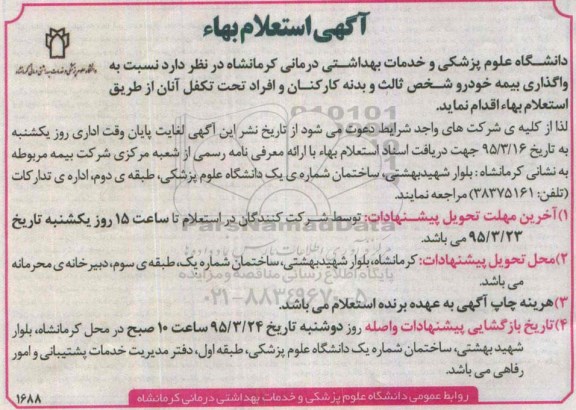 آگهی استعلام بهاء
دانشگاه علوم پزشکی و خدمات بهداشتی درمانی کرمانشاه
دانشگاه علوم پزشکی و خدمات بهداشتی درمانی کرمانشاه در نظر دارد نسبت به
واگذاری بیمه خودرو شخص ثالث و بدنه کارکنان و افراد تحت تکفل آنان از طریق
استعلام بهاء اقدام نماید.
لذا از کلیه ی شرکت های واجد شرایط دعوت می شود از تاریخ نشر این آگهی لغایت پایان وقت اداری روز یکشنبه
به تاریخ ۹۵/۳/۱۶ جهت دریافت اسناد استعلام بهاء با ارائه معرفی نامه رسمی از شعبه مرکزی شرکت بیمه مربوطه
به نشانی کرمانشاه: بلوار شهیدبهشتی، ساختمان شماره ی یک دانشگاه علوم پزشکی، طبقه ی دوم، اداره ی تدارکات
(تلفن: ۳۸۳۷۵۱۶۱) مراجعه نمایند.
۱)آخرین مهلت تحویل پیشنهادات: توسط شرکت کنندگان در استعلام تا ساعت ۱۵ روز یکشنبه تاریخ
۹۵/۳/۲۳ می باشد.
۲)محل تحویل پیشنهادات: کرمانشاه، بلوار شهیدبهشتی، ساختمان شماره یک، طبقه ی سوم، دبیرخانه ی محرمانه
می باشد.
۳)هزینه چاپ آگهی به عهده برنده استعلام می باشد.
۴)تاریخ بازگشایی پیشنهادات واصله روز دوشنبه تاریخ ۹۵/۳/۲۴ ساعت ۱۰ صبح در محل کرمانشاه، بلوار
شهید بهشتی، ساختمان شماره یک دانشگاه علوم پزشکی، طبقه اول، دفتر مدیریت خدمات پشتیبانی و امور
رفاهی می باشد.
روابط عمومی دانشگاه علوم پزشکی و خدمات بهداشتی درمانی کرمانشاه
۱۶۸۸
ParsNamadData
پایگاه اطلاع رسانی مناقصه و مزایده
۰۲۱-۸۸۳۴۹۶۷۰-۵